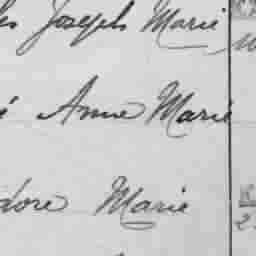 Joseph Marie
Anne Marie
dore Marie